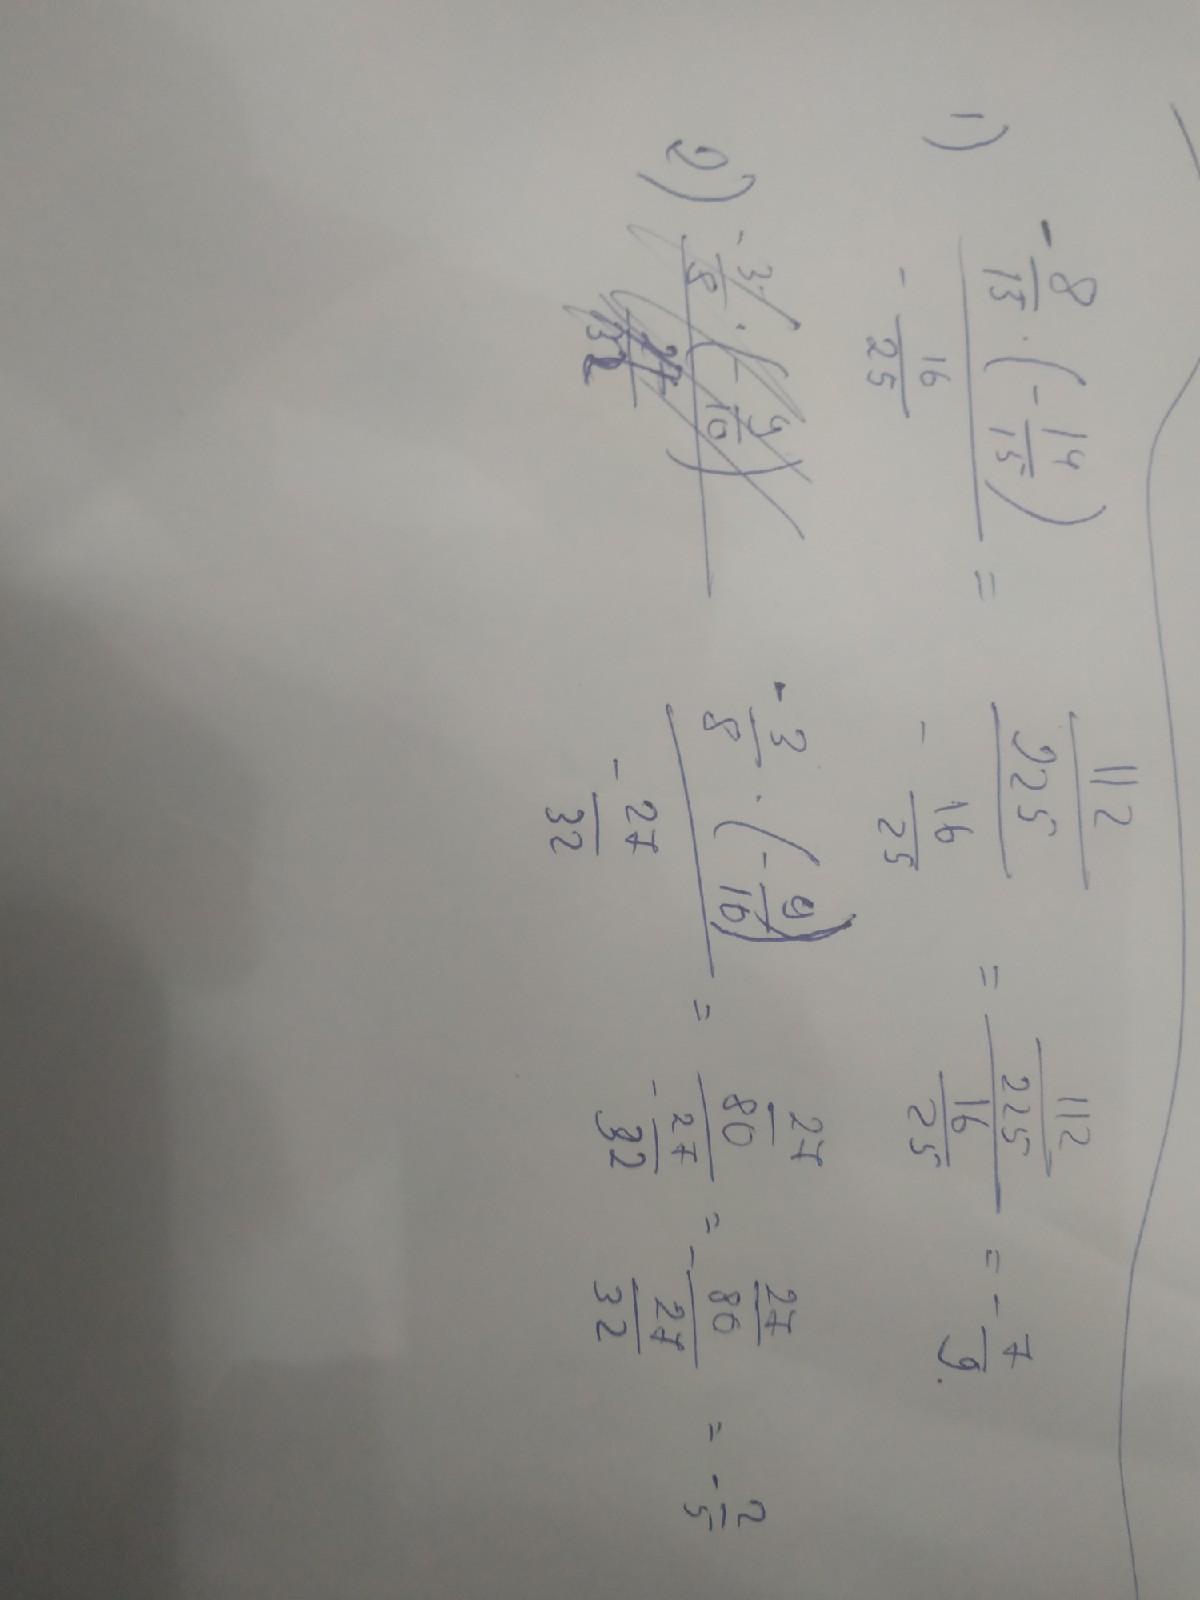 1) - 8/15 · (- 14/15) / - 16/25 = 112/225 / - 16/25 = 112/225 / 16/25 = - 7/9.
2) - 3/8 · (- 9/10) / - 27/32 - 3/8 · (- 9/10) / - 27/32 = 27/80 / - 27/32 = - 27/80 / 27/32 = - 2/5